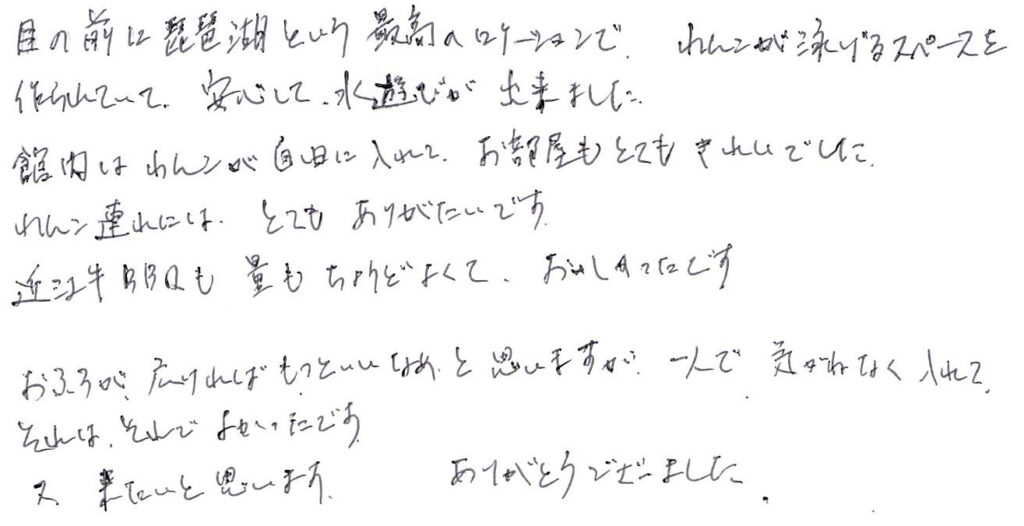 目の前に琵琶湖という最高のロケーションで、わんこが泳げるスペースを
作られていて、安心して、水遊びが出来ました。
館内はわんこが自由に入れて、お部屋もとてもきれいでした。
わんこ連れには、とてもありがたいです。
近江牛BBQも量もちょうどよくて、おいしかったです
おふろが、広ければもっといいなぁ、と思いますが、一人で気がねなく入れて、
それは、それでよかったです。
又来たいと思います。 ありがとうございました。